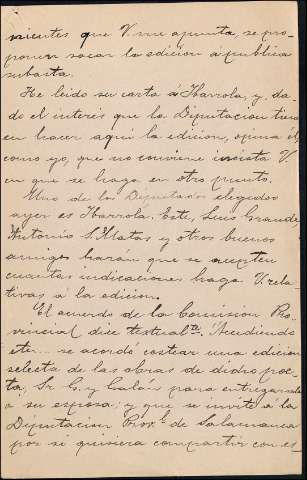 nientes que V. me apunta, se pro-
ponen sacar la edición á pública
subasta.
He leido su carta á Ibarrola y, da-
do el interés que la Diputación tiene
en hacer aquí la edición, opina él
como yo, que no conviene insista V.
en que se haga en otro punto.
Uno de los Diputados elegidos
ayer es Ibarrola. Este, Luis Grande,
Antonio S. Matas y otros buenos
amigos harán que se acepten
cuantas indicaciones haga V. rela-
tivas á la edición.
El acuerdo de la Comisión Pro-
vincial dice textualte. "Accediendo
etc... se acordó costear una edición
selecta de las obras de dicho poe-
ta, Sr. G. y Galán para entregarsela
a su esposa; y que se invite á la
Diputacion Provl. de Salamanca
por si quisiera compartir con es-